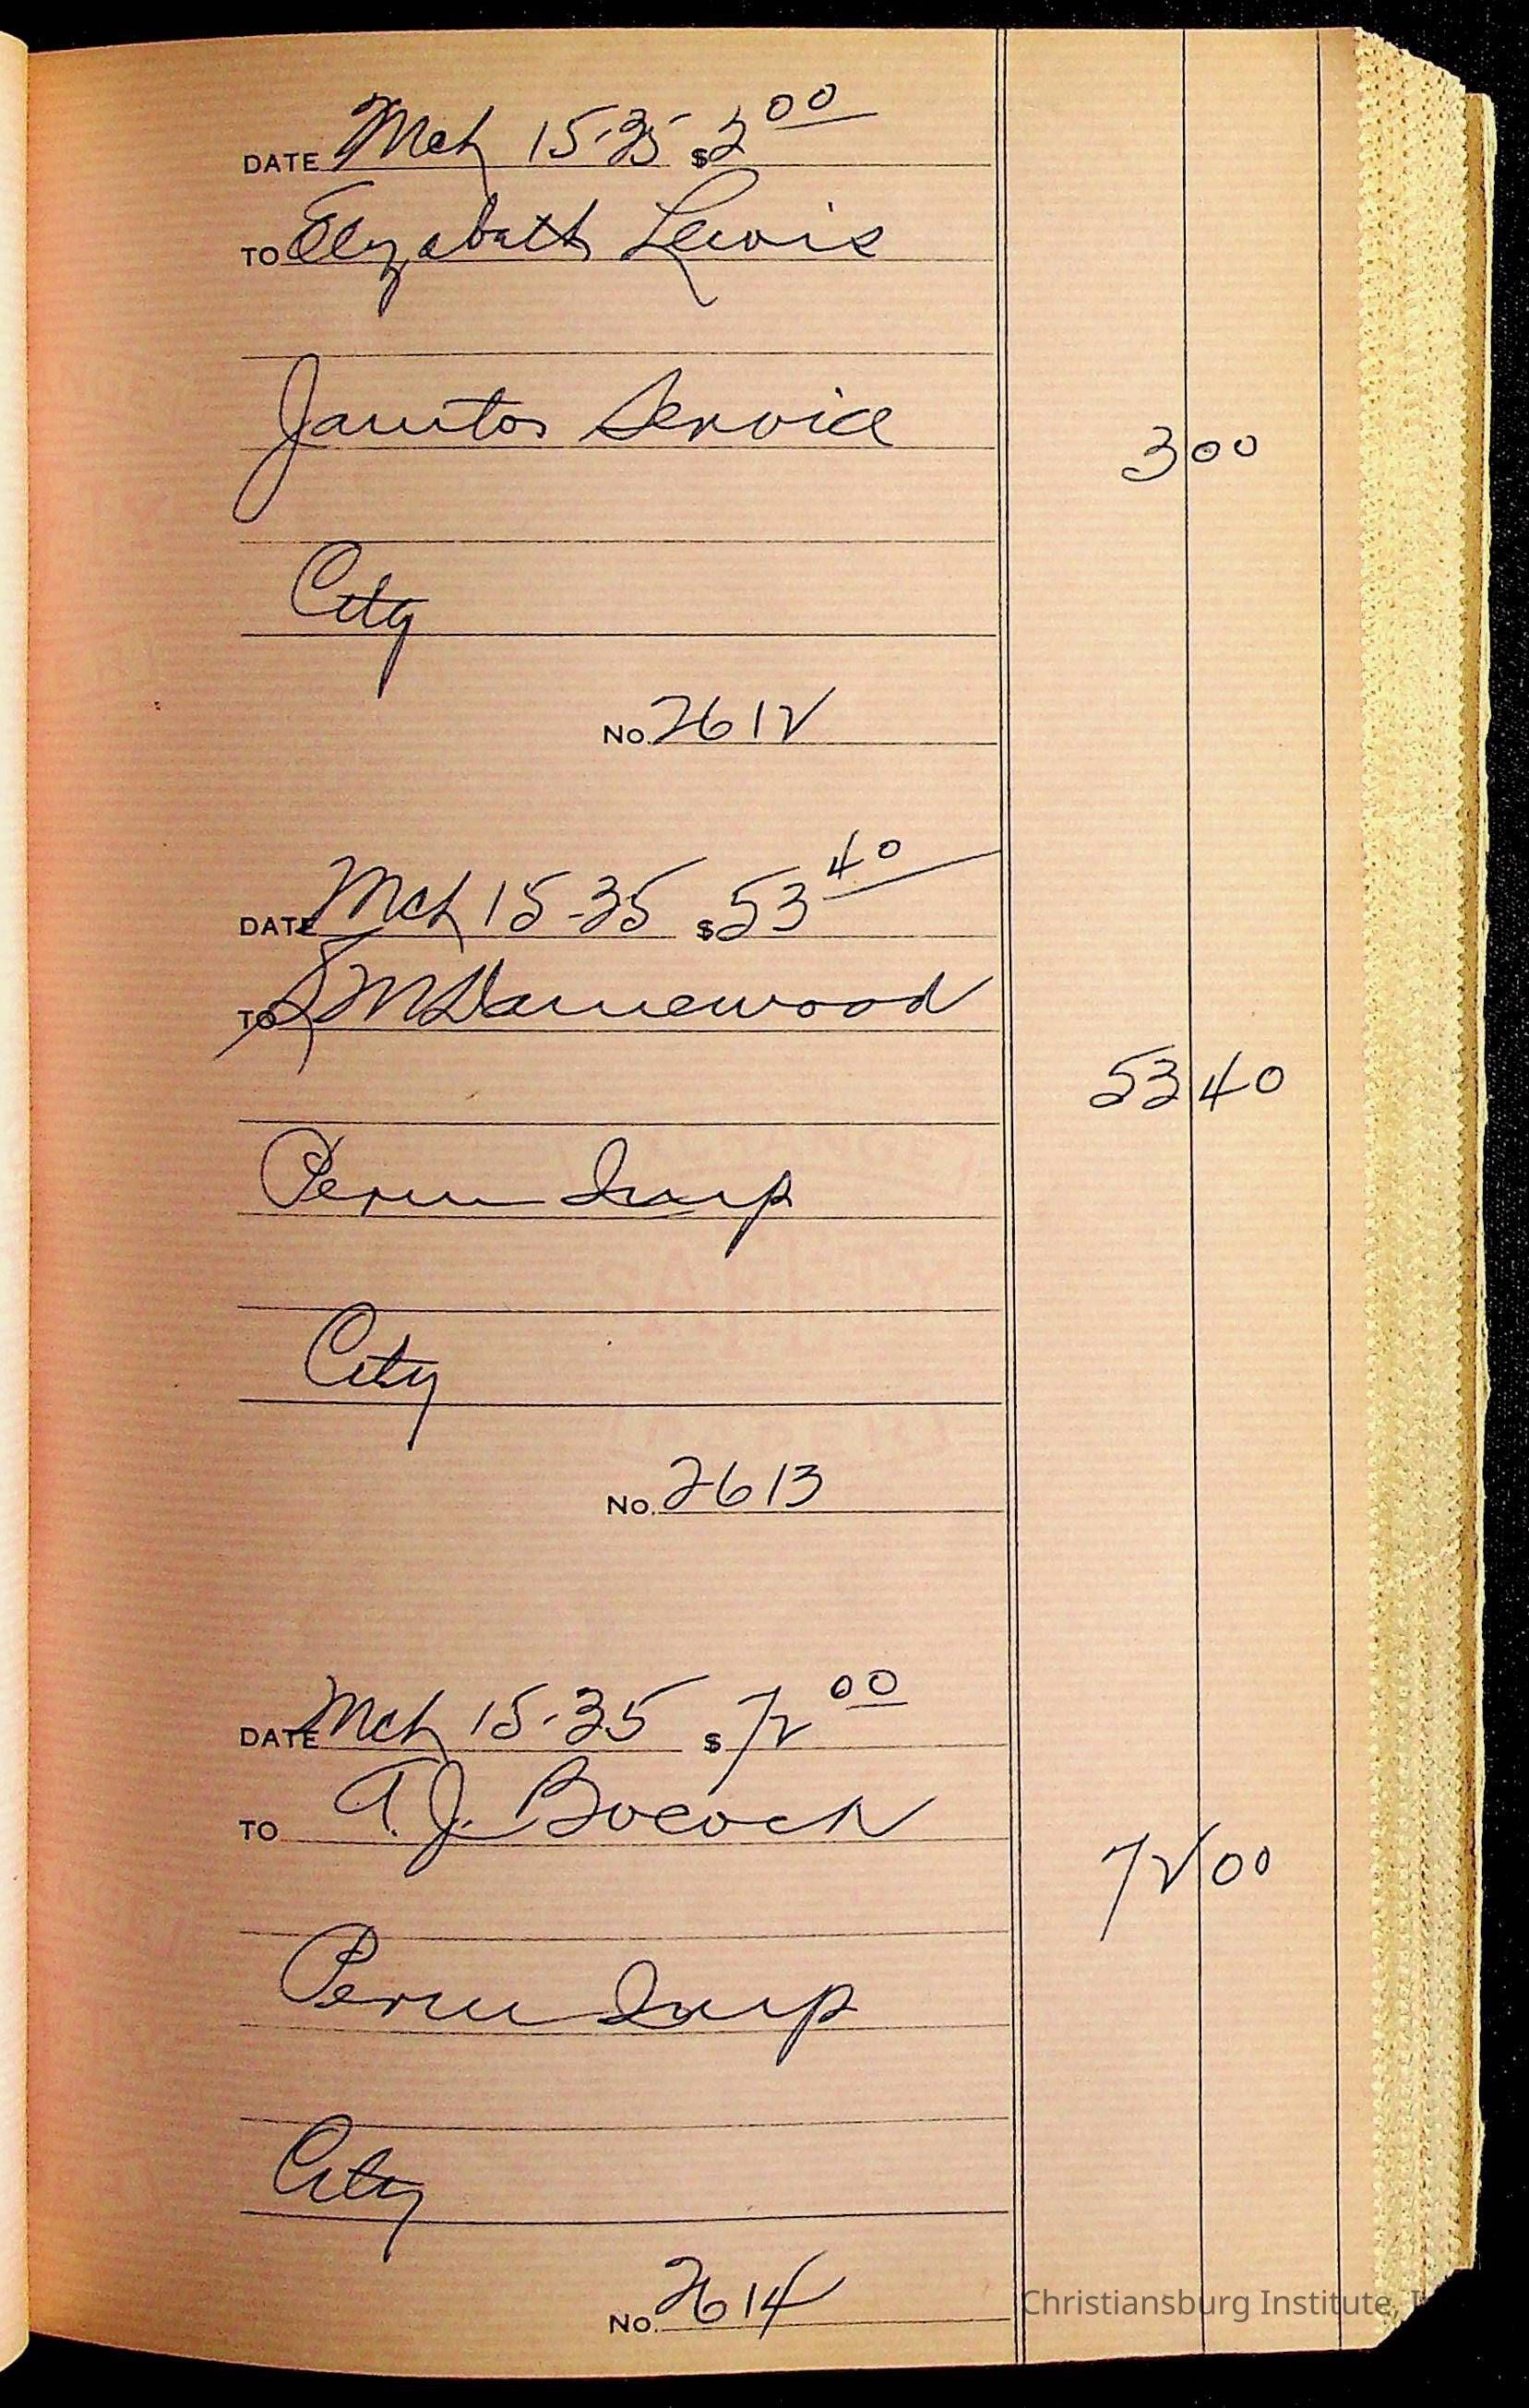 DATE Mch 15-35 $3 00
TO Elizabeth Lewis
Janitor Service 3 00
City
No. 2612
DATE Mch 15-35 $53 40
TO S M Damewood
53 40
Perm Imp
City
No. 2613
DATE Mch 15-35 $72 00
TO A. J. Bocock
72 00
Perm Imp
City
No. 2614
Christiansburg Institute,